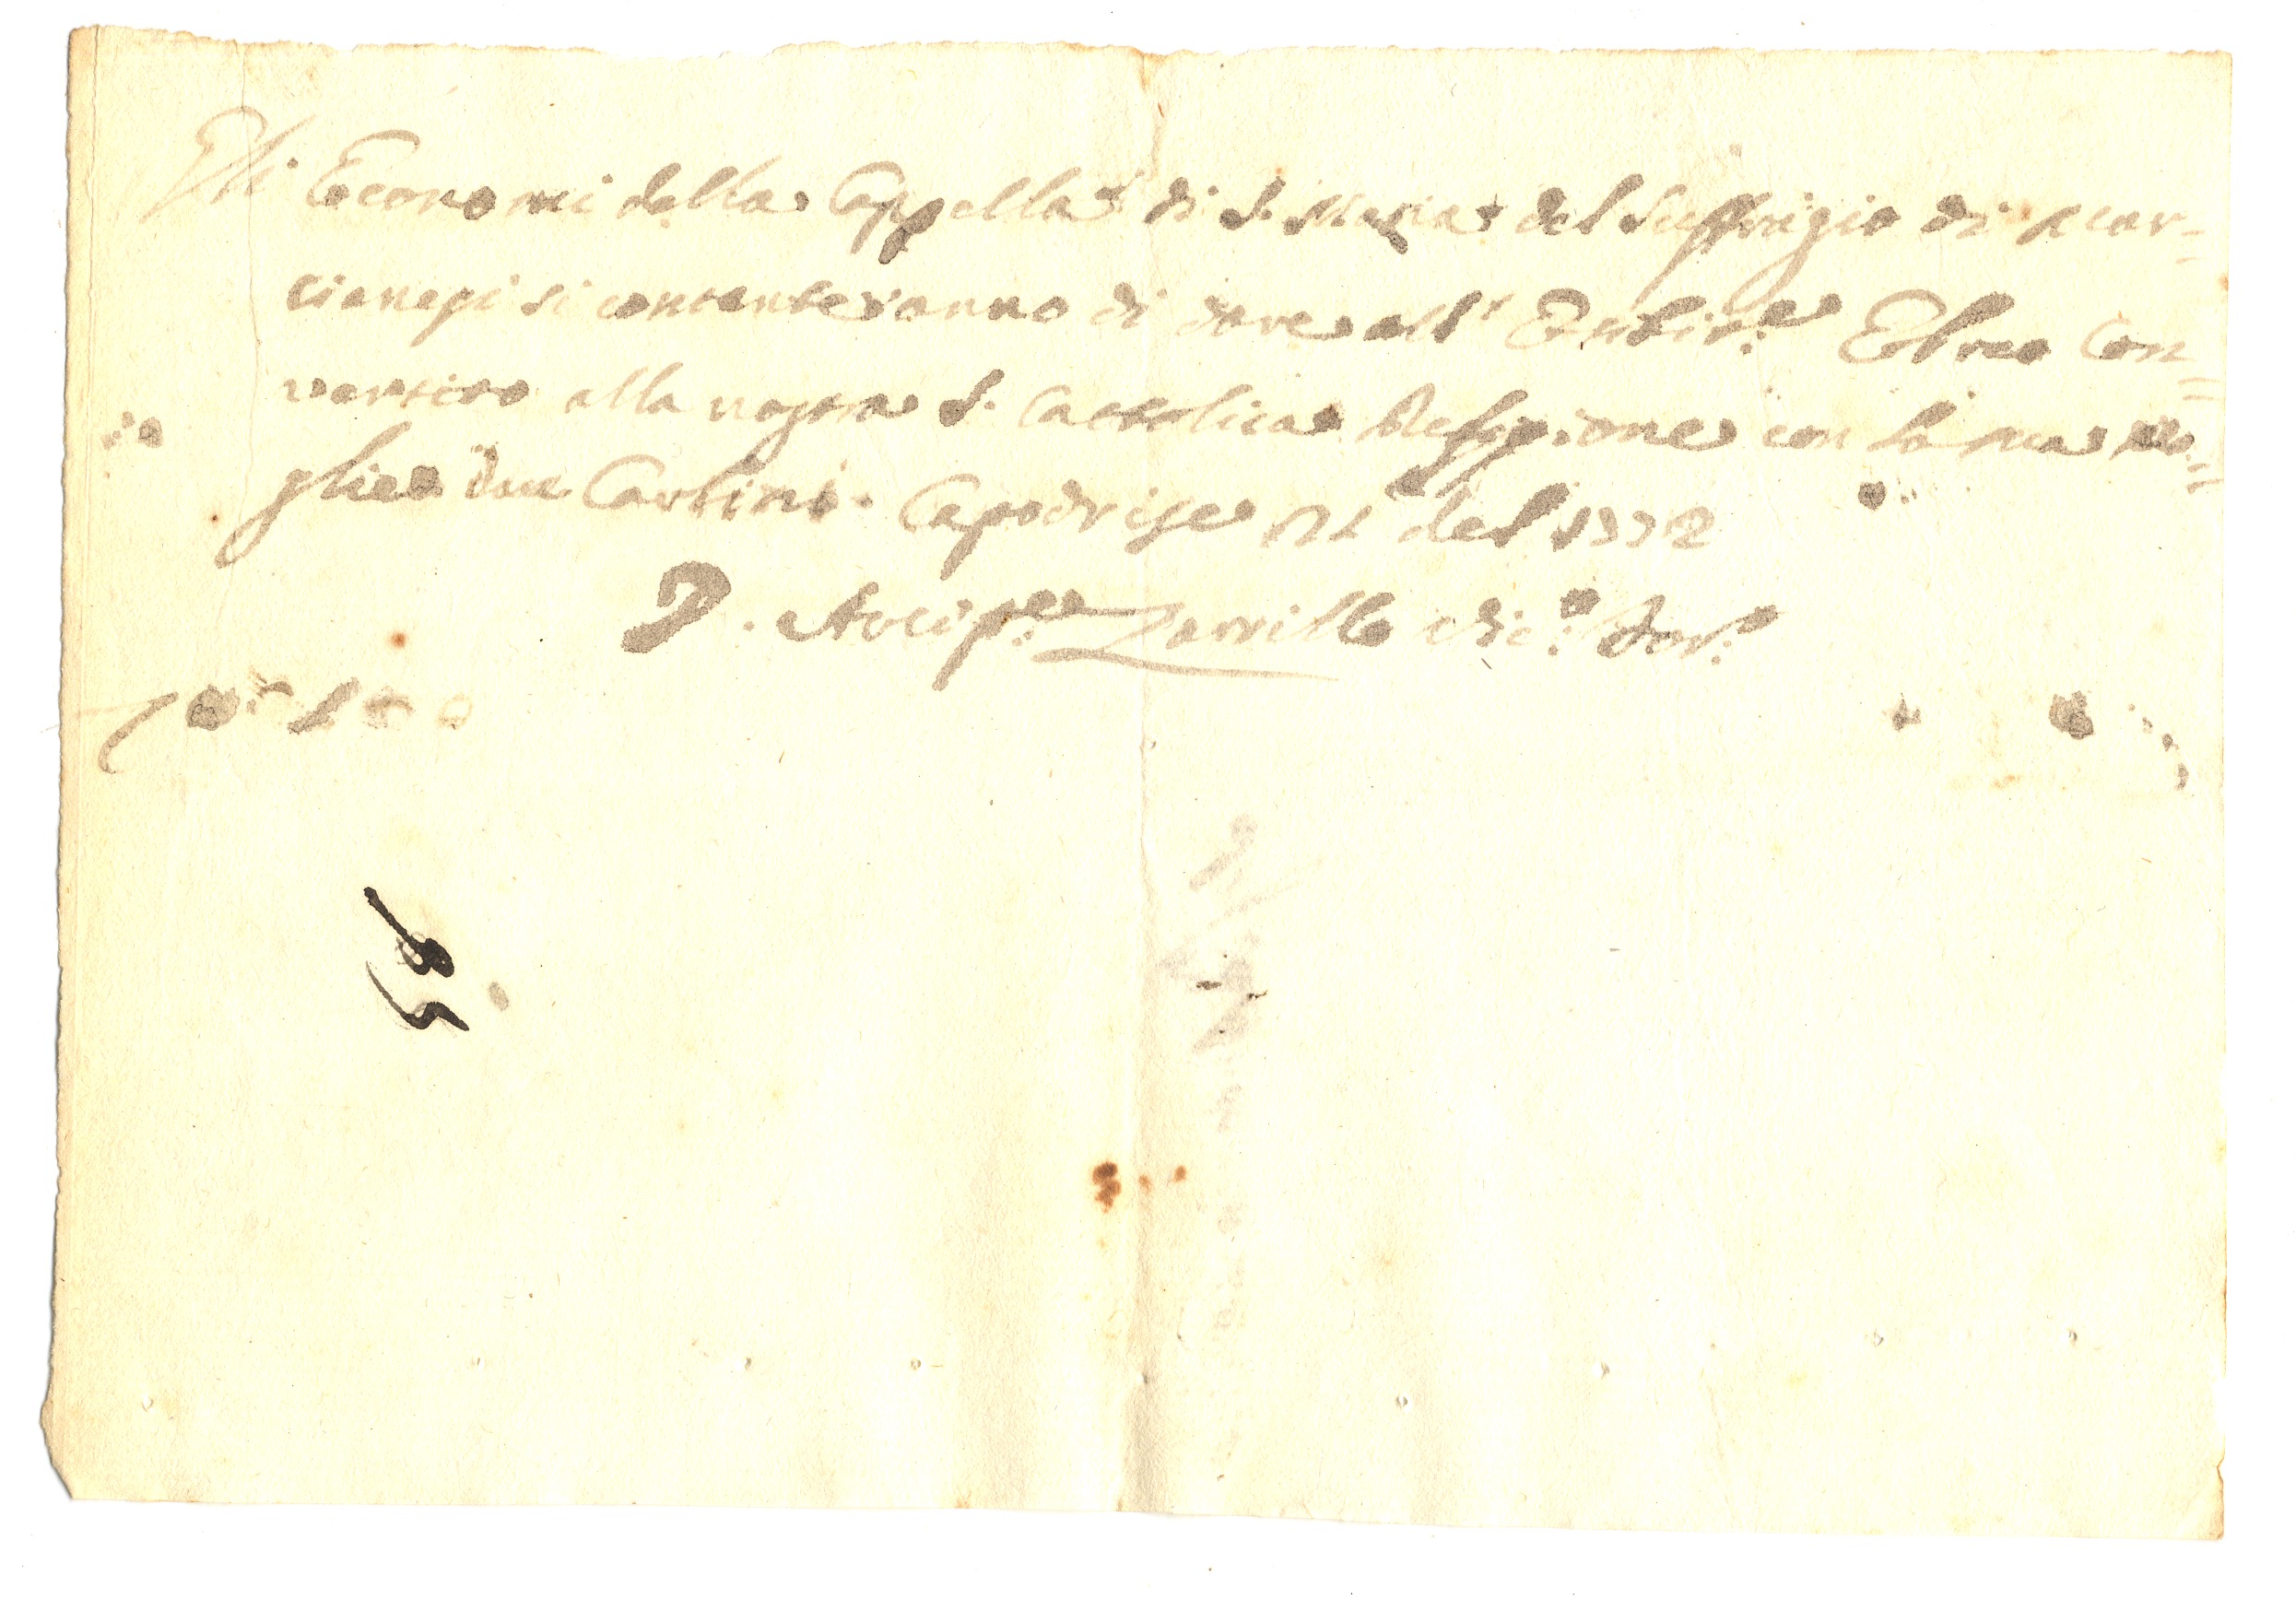 Gli Economi della Cappella di S. Maria del Suffragio di Mar-
cianegi si contenteranno di dare all' Ebreo Con=
vertito alla nostra S. Cattolica Religione con la sua mo=
glie due Carlini. Capodrise del 1772
D. Arcip.e Zarrillo
56